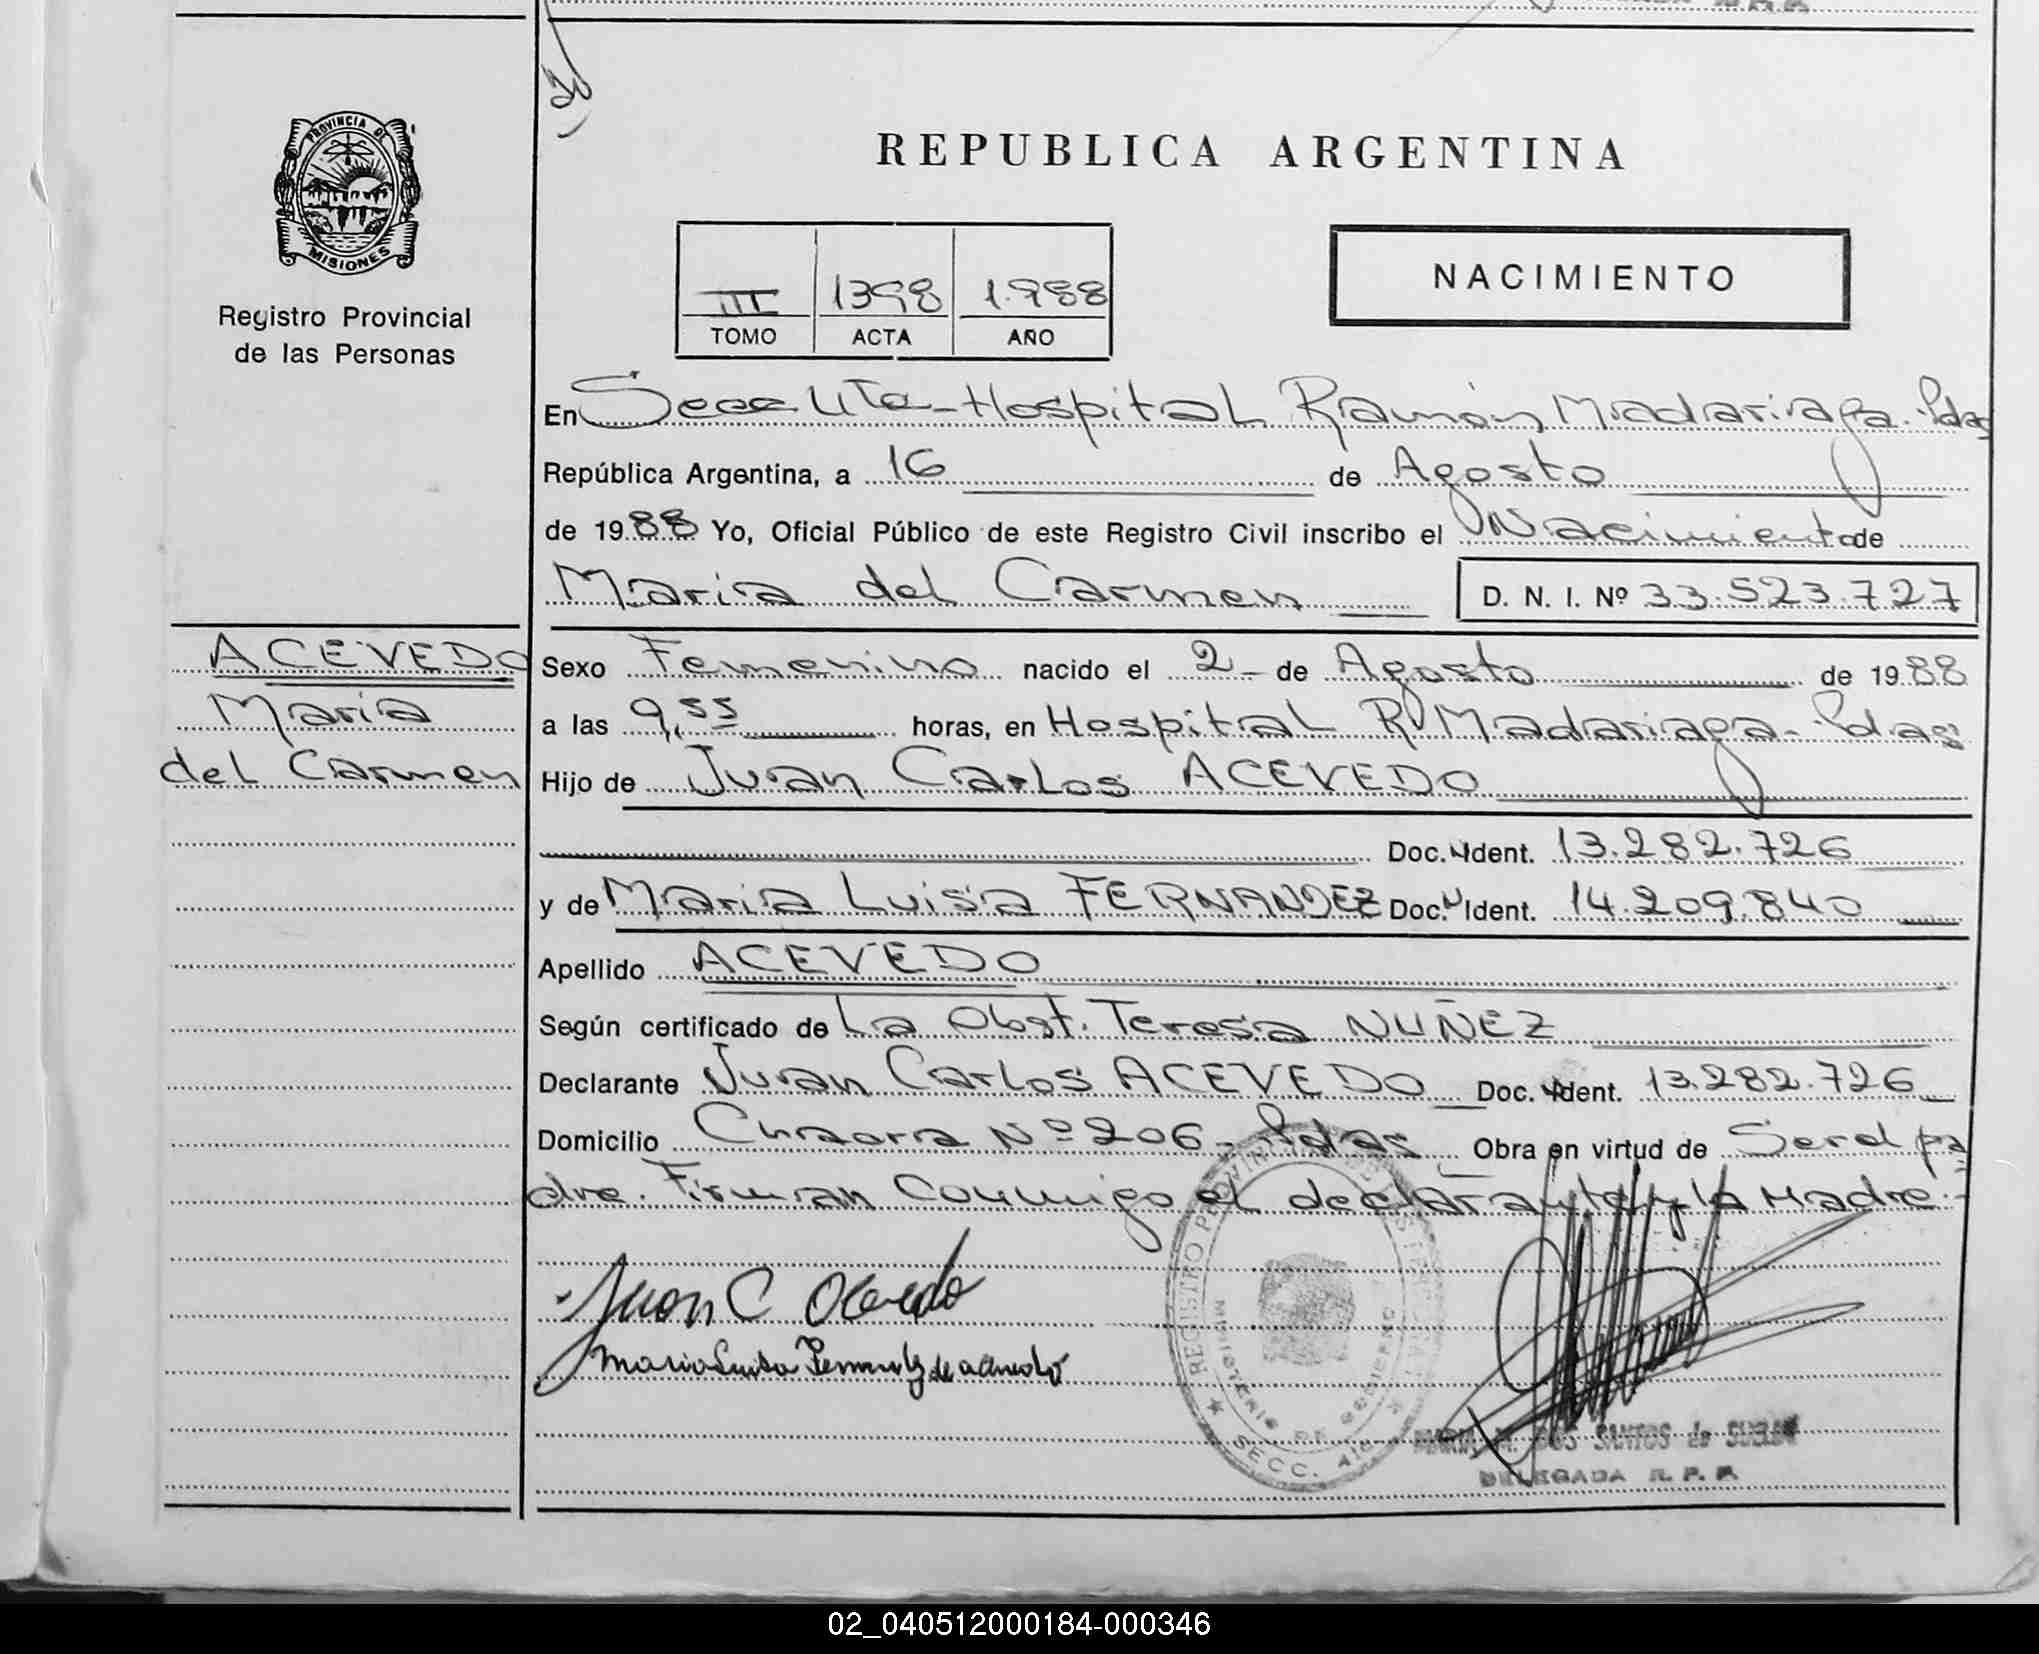 PROVINCIA DE
MISIONES
Registro Provincial
de las Personas
REPUBLICA ARGENTINA
III 1398 1.988
TOMO ACTA AÑO
NACIMIENTO
En Secc 4ta-Hospital Ramón Madariaga. Pdas
República Argentina, a 16 de Agosto
de 1988 Yo, Oficial Público de este Registro Civil inscribo el Nacimiento de
Maria del Carmen D. N. I. Nº 33.523.727
ACEVEDO
Maria
del Carmen
Sexo Femenino nacido el 2 de Agosto de 1988
a las 9,55 horas, en Hospital R Madariaga- Pdas
Hijo de Juan Carlos ACEVEDO
Doc. Ident. 13.282.726
y de Maria Luisa FERNANDEZ Doc. Ident. 14.209.840
Apellido ACEVEDO
Según certificado de La Obst. Teresa NUÑEZ
Declarante Juan Carlos ACEVEDO Doc. Ident. 13.282.726
Domicilio Nº 206- Pdas Obra en virtud de Ser el pa
dre. Firman conmigo el declarante y la Madre.-
Juan C Acevedo
Maria Luisa Fernandez de acevedo
REGISTRO PROVINCIAL DE LAS PERSONAS
MINISTERIO DE GOBIERNO
SECC. 4ta
MARIA M. DOS SANTOS de
DELEGADA R. P. P.
02_040512000184-000346